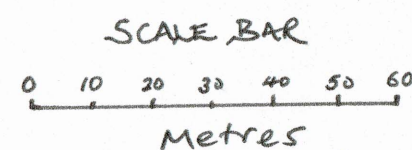 SCALE BAR
0 10 20 30 40 50 60
Metres